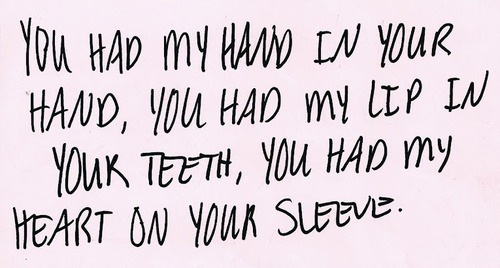 YOU HAD MY HAND IN YOUR
HAND, YOU HAD MY LIP IN
YOUR TEETH, YOU HAD MY
HEART ON YOUR SLEEVE.